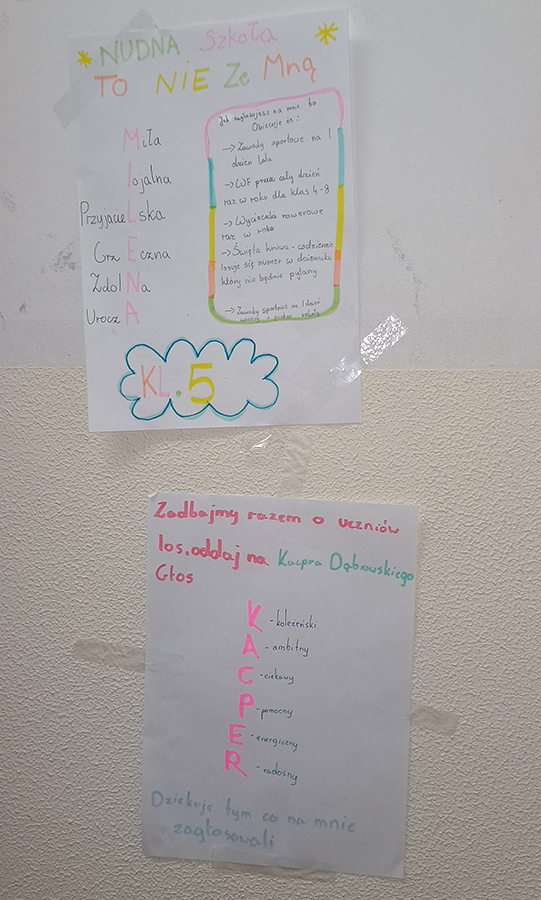 NUDNA SzkoŁa
TO NIE Ze Mną
Miła
lojalna
PrzyjacieLska
GrzEczna
ZdolNa
UroczA
Jak zagłosujesz na mnie to
Obiecuje że:
→ Zawody sportowe na 1
dzień lata
→ WF przez cały dzień
raz w roku dla klas 4-8
→ Wycieczki rowerowe
raz w roku
→ Święta krwa - codziennie
losuje się numer w dzienniku
który nie będzie pytany
→ Zawody sportowe na 1 dzień
wiosny
KL. 5
Zadbajmy razem o uczniów
los. oddaj na Kacpra Dąbrowskiego
Głos
K - koleżeński
A - ambitny
C - ciekawy
P - pomocny
E - energiczny
R - radosny
Dziękuję tym co na mnie
zagłosowali